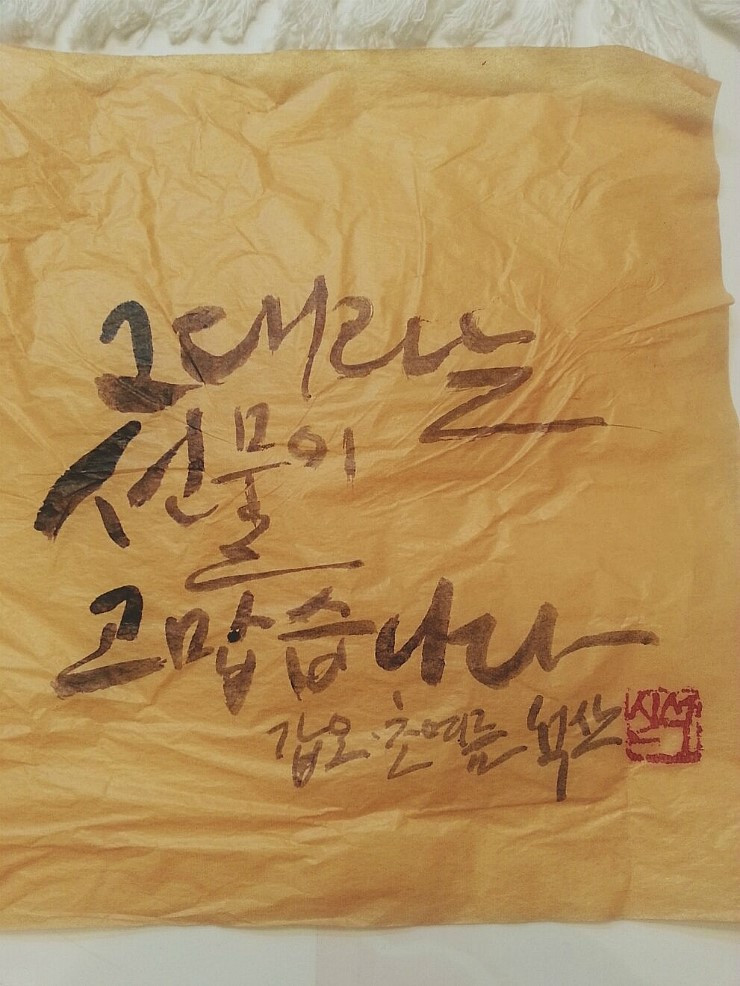 그대라는
선물이
고맙습니다
갑오.초여름
신석